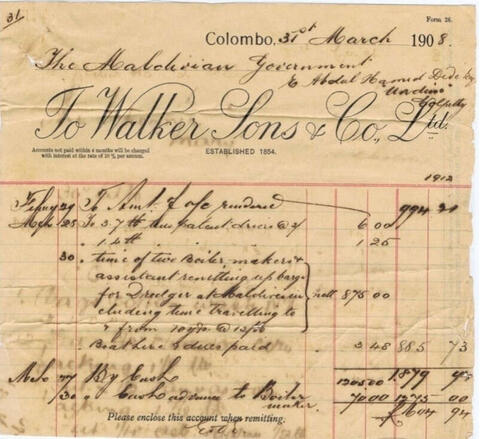 31
Form 26.
Colombo, 31st March 1908.
The Maldivian Government
C Abdul Hamed Didi
Colpetty
To Walker Sons & Co., Ltd.
Accounts not paid within 6 months will be charged
with interest at the rate of 10 % per annum.
ESTABLISHED 1854.
1912
29 To Amt. of a/c rendered 994 21
25 To 3 7 lbs patent driers @ 6 00
1 lb 1 25
30 time of two Boiler makers &
assistant rivetting up barge
for Dredger at Maldives in nett 875.00
cluding time travelling to
& from
Boat hire & dues paid 3 48 885 73
27 By Cash 1205.00 1879 94
30 Cash advance to Boiler 70 00 1275 00
maker. 604 94
Please enclose this account when remitting.